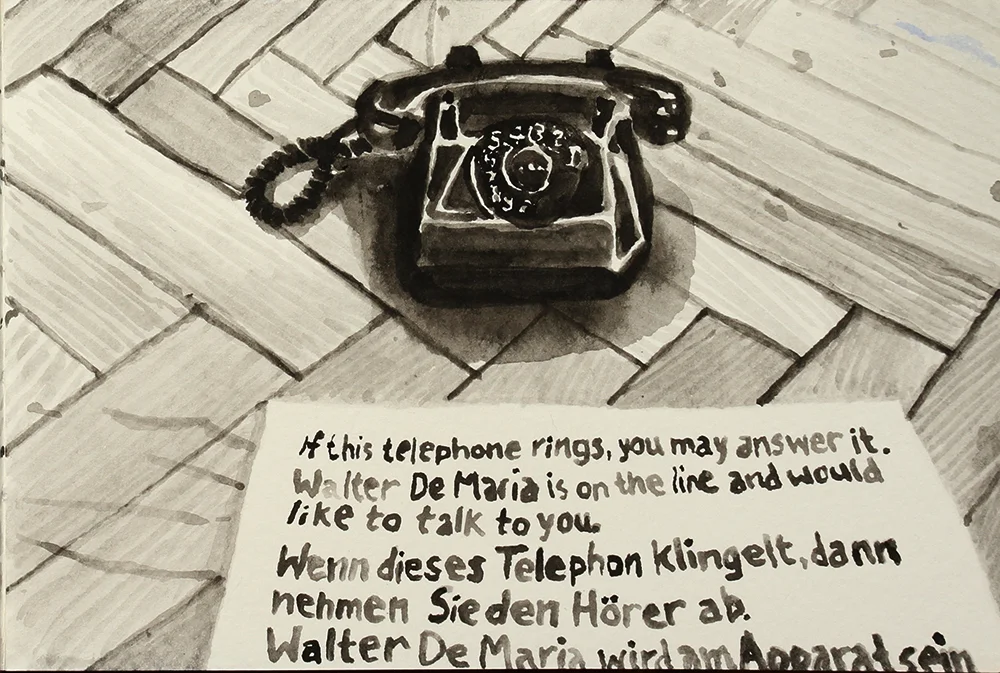 If this telephone rings, you may answer it.
Walter De Maria is on the line and would
like to talk to you.
Wenn dieses Telephon klingelt, dann
nehmen Sie den Hörer ab.
Walter De Maria wird am Apparat sein